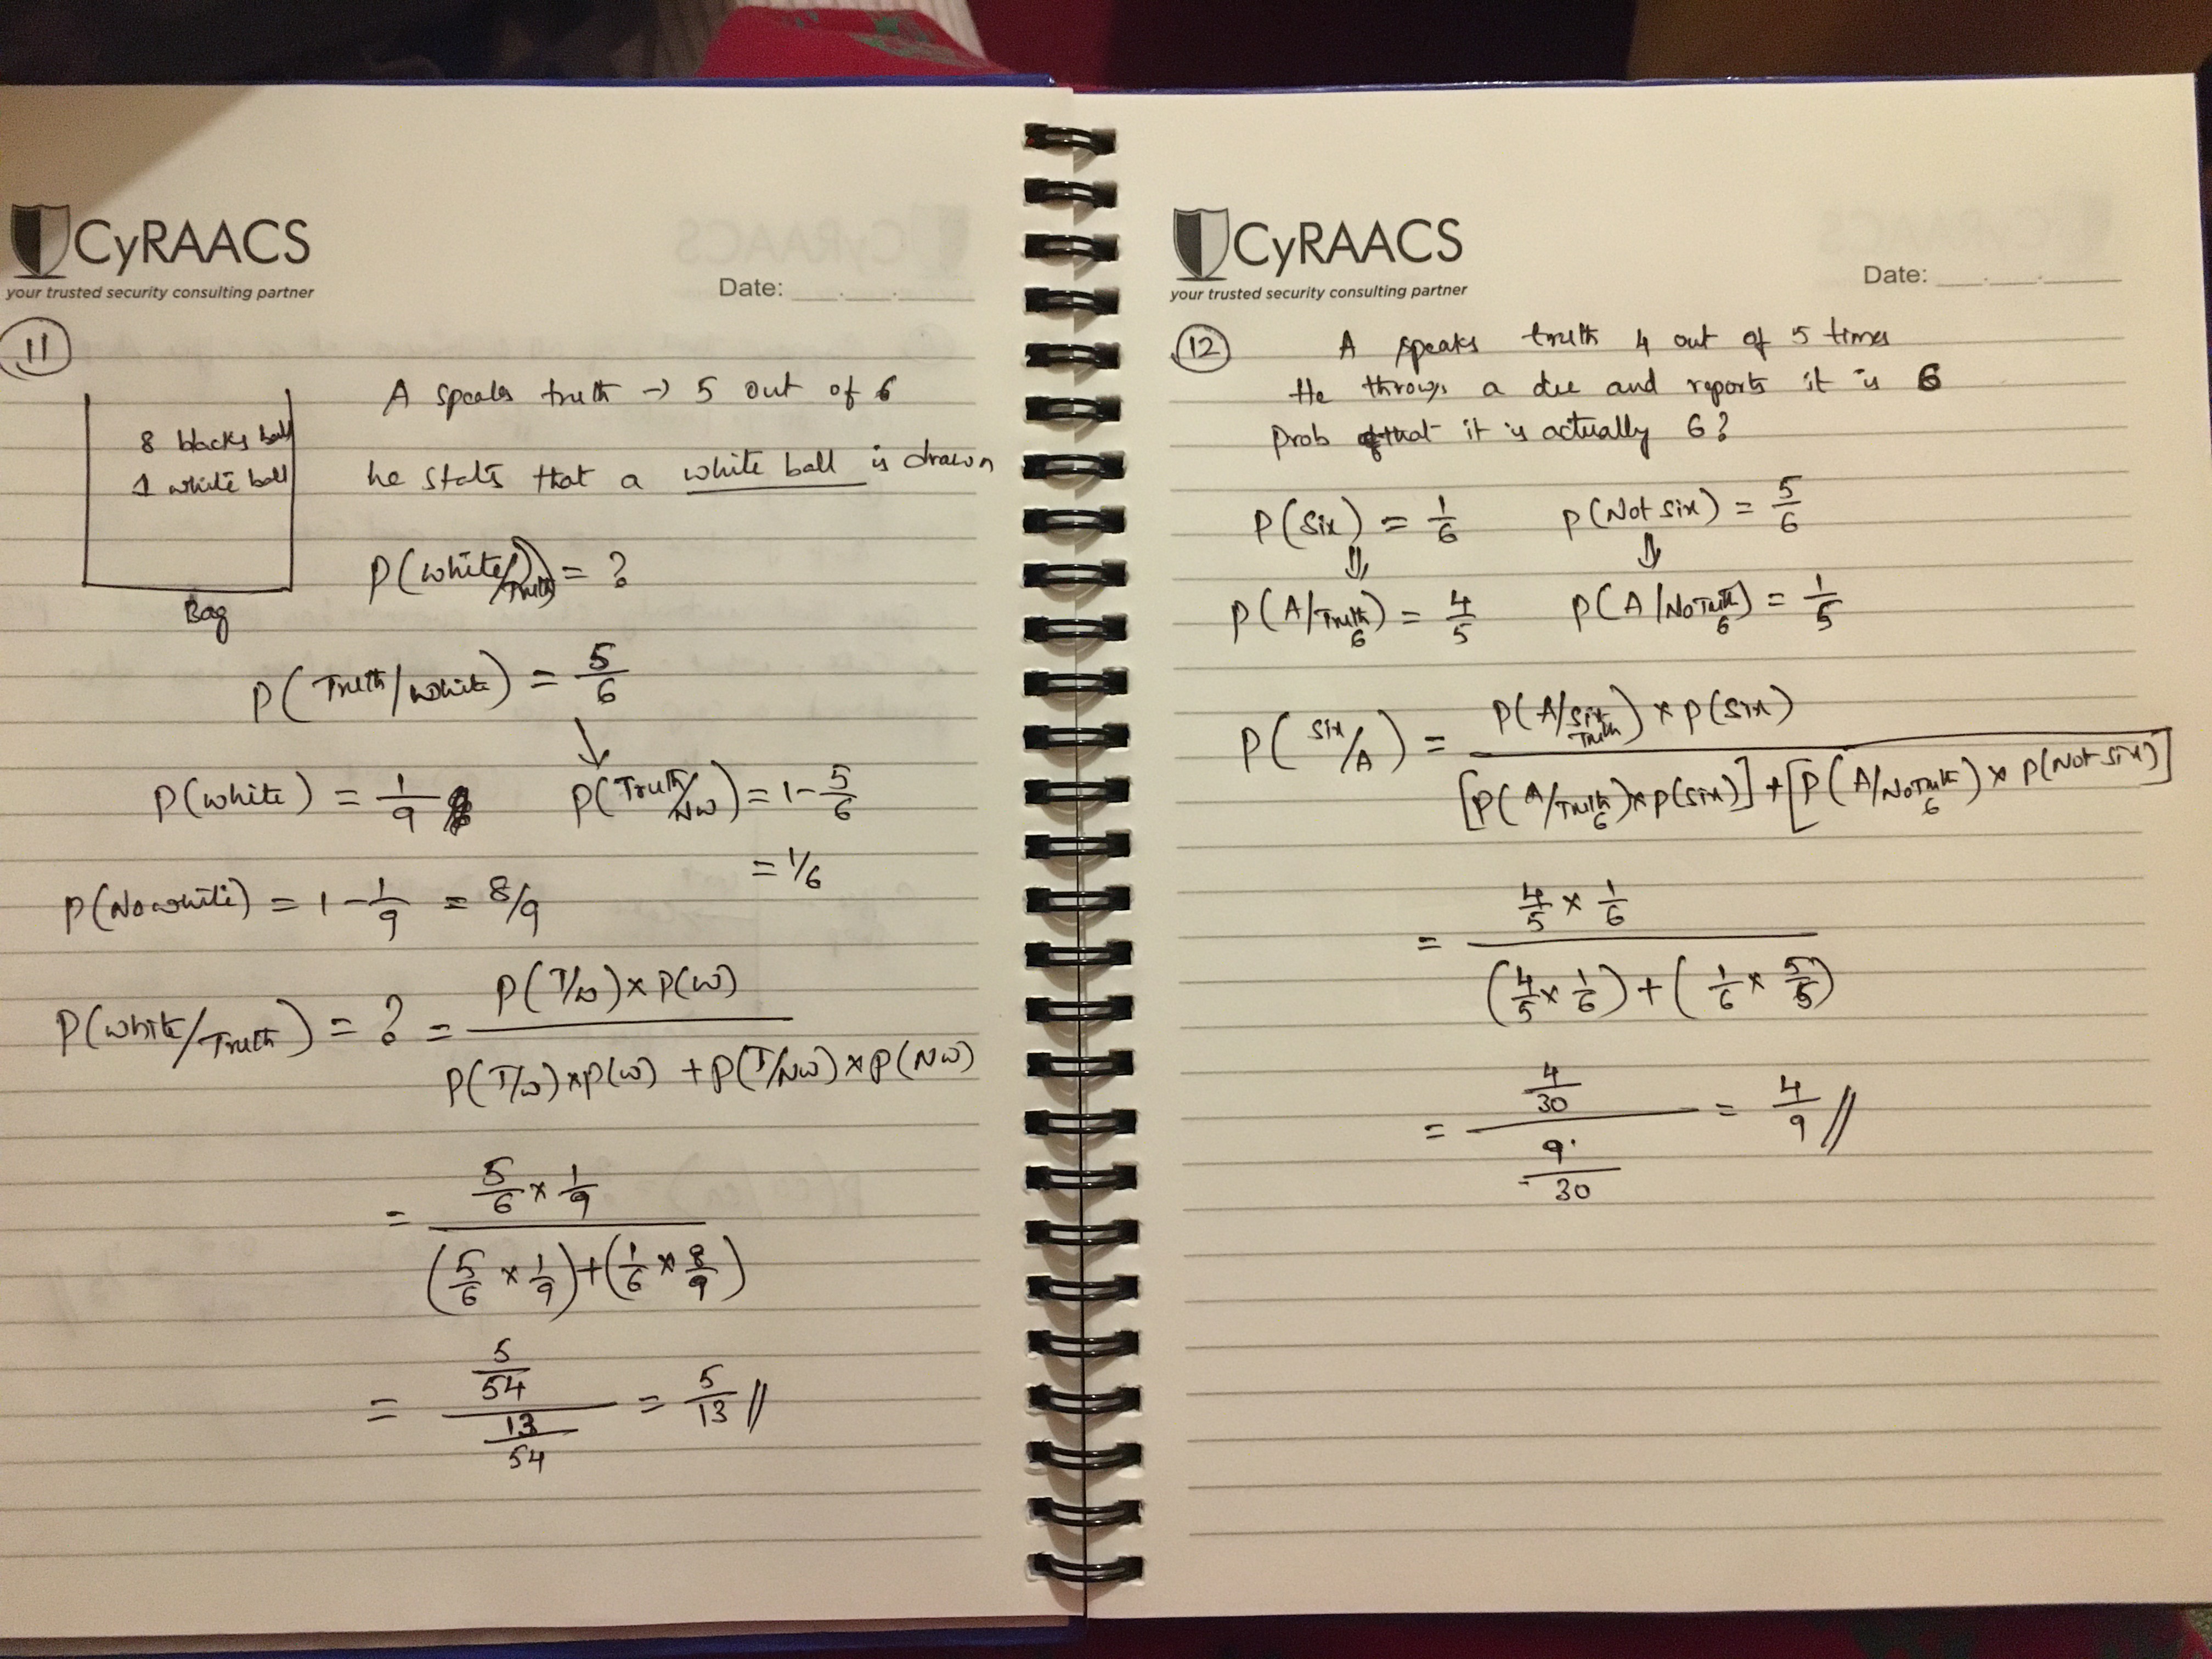 CyRAACS
your trusted security consulting partner
Date:
11
8 blacks ball
1 white ball
Bag
A speaks truth → 5 out of 6
he stats that a white ball is drawn
P(white/Truth) = ?
P(Truth/white) = 5/6
P(white) = 1/9 P(Truth/NW) = 1 - 5/6
= 1/6
P(No white) = 1 - 1/9 = 8/9
P(white/Truth) = ? = P(T/w) x P(w)
P(T/w) x P(w) + P(T/NW) x P(NW)
= 5/6 x 1/9
(5/6 x 1/9) + (1/6 x 8/9)
= 5/54
13/54 = 5/13 //
CyRAACS
your trusted security consulting partner
Date:
12
A speaks truth 4 out of 5 times
He throws a die and reports it is 6
prob that it is actually 6?
P(six) = 1/6 P(Not six) = 5/6
P(A/Truth 6) = 4/5 P(A/NoTruth 6) = 1/5
P(six/A) = P(A/six Truth) x P(six)
[P(A/Truth 6) x P(six)] + [P(A/NoTruth 6) x P(Not six)]
= 4/5 x 1/6
(4/5 x 1/6) + (1/6 x 5/6)
= 4/30
9/30 = 4/9 //